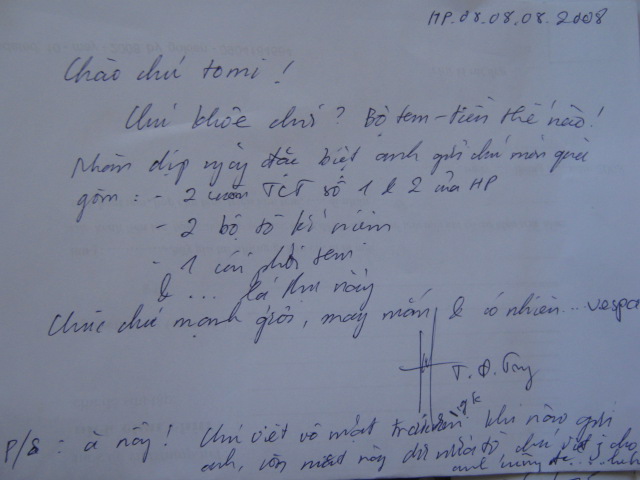 HP. 08.08.08.2008
Chào chú tomi!
Chú khỏe chứ? Bộ tem-tiền thế nào!
Nhân dịp ngày đặc biệt anh gửi chú món quà
gồm: - 2 cuốn TCT số 1 & 2 của HP
- 2 bộ tờ kỉ niệm
- 1 cái phơi tem
& ... lá thư này
Chúc chú mạnh giỏi, may mắn & có nhiên... vespa
T.Đ.
P/S: à này! Chú viết vô mặt khi nào gửi
anh, còn mặt này chú viết gì cho